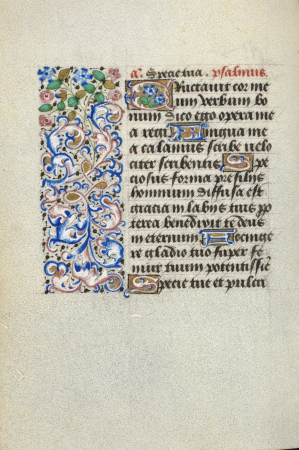 a. Specie tua. psalmus.
Eructavit cor me
um verbum bo
num dico ego opera me
a regi Lingua me
a calamus scribe velo
citer scribentis Spe
ciosus forma pre filiis
hominum diffusa est
gracia in labiis tuis prop
terea benedixit te deus
in eternum Accinge
re gladio tuo super fe
mur tuum potentissie
Specie tue et pulcri